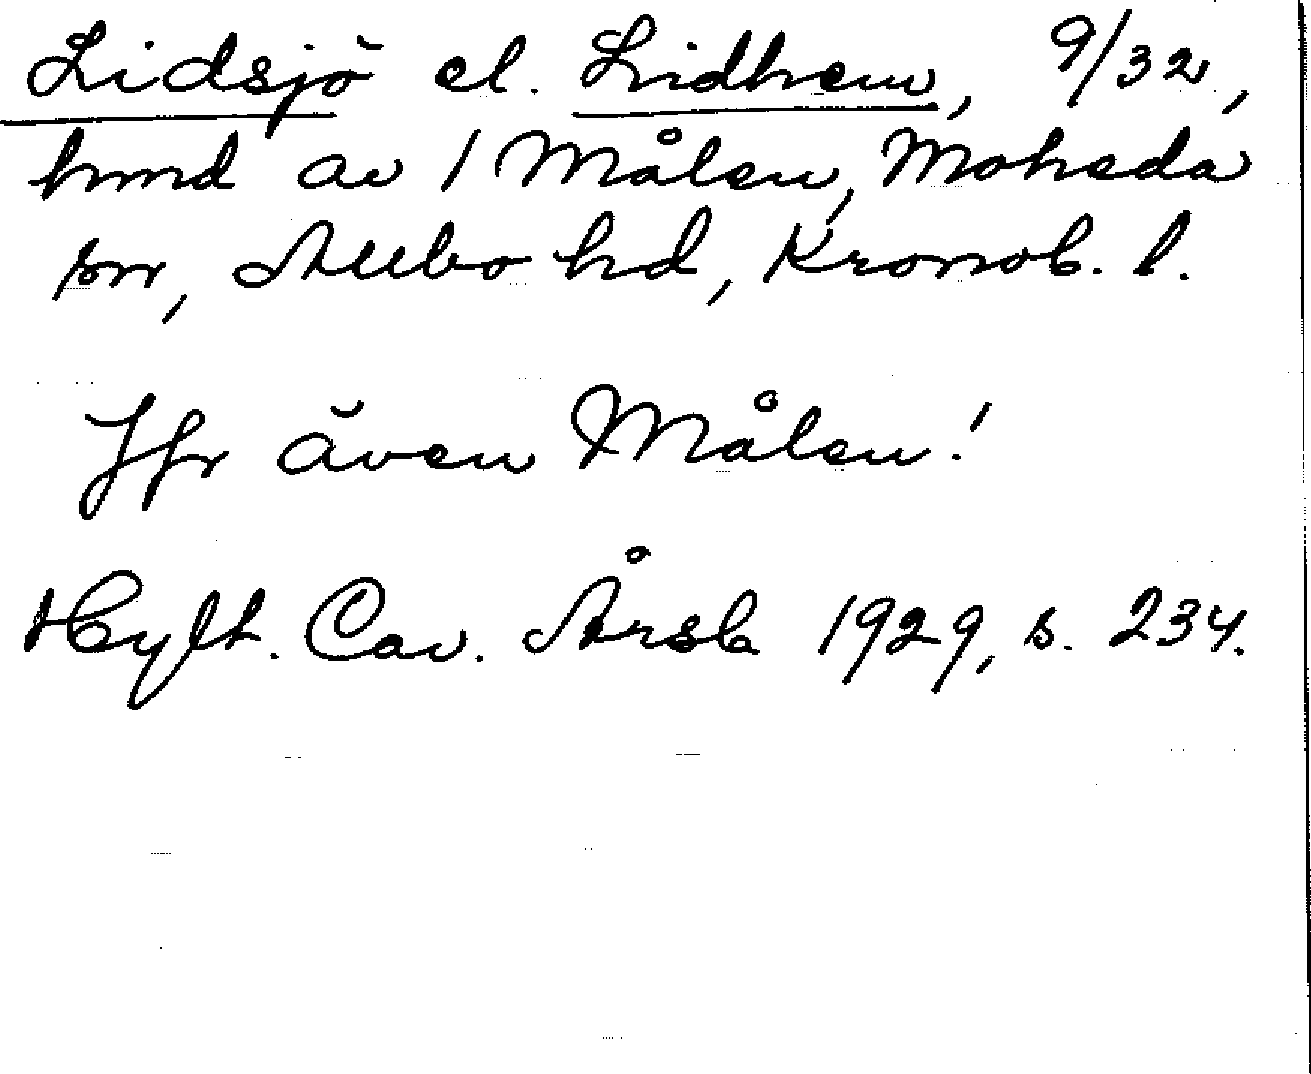 Lidsjö el. Lidhem, 9/32,
hmd av 1 Målen, Moheda
sn, Allbo hd, Kronob. l.
Jfr även Målen!
Hylt. Cav. Årsb 1929, s. 234.